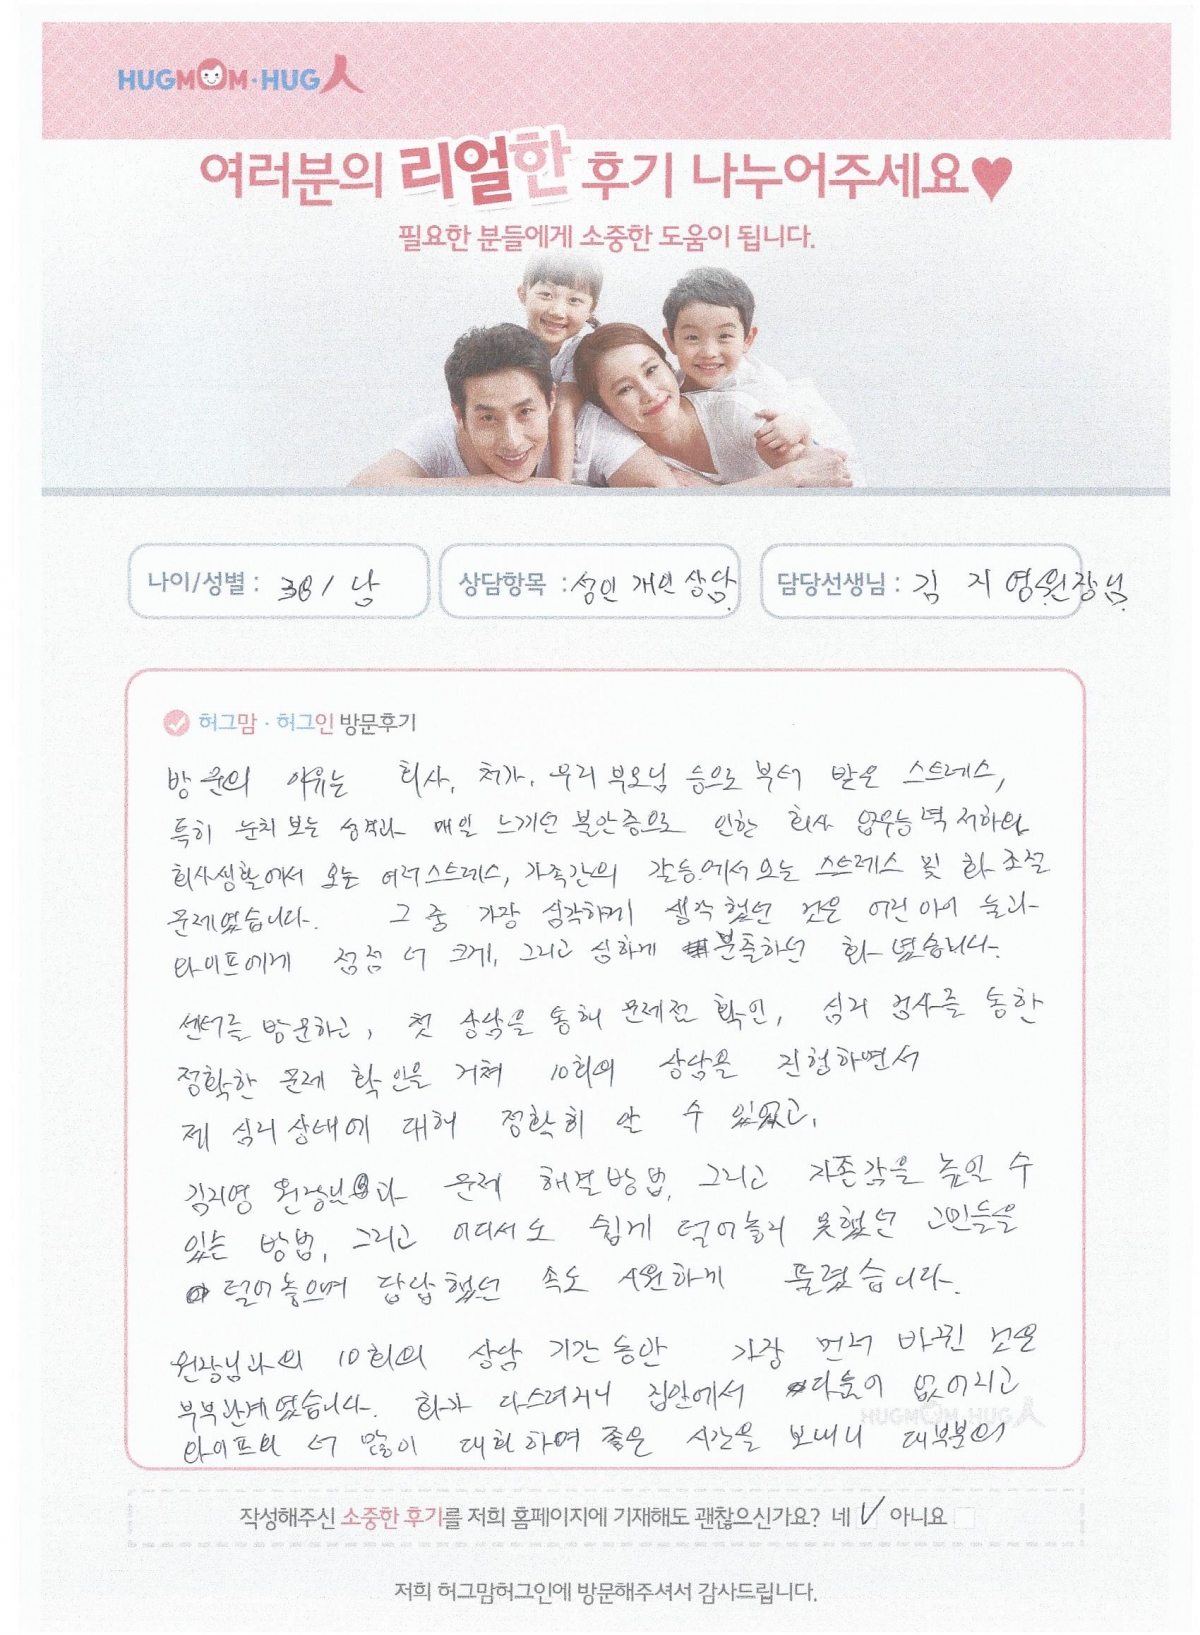 HUGMOM·HUG人
여러분의 리얼한 후기 나누어주세요♥
필요한 분들에게 소중한 도움이 됩니다.
나이/성별 : 38 / 남
상담항목 : 성인 개인 상담.
담당선생님 : 김 지 영 원장님.
허그맘 · 허그인 방문후기
방문의 이유는 회사, 처가, 우리 부모님 등으로 부터 받은 스트레스,
특히 눈치 보는 성격과 매일 느끼던 불안증으로 인한 회사 업무능력 저하와
회사생활에서 오는 여러 스트레스, 가족간의 갈등에서 오는 스트레스 및 화 조절
문제였습니다. 그 중 가장 심각하게 생각했던 것은 어린 아이 둘과
와이프에게 점점 더 크게, 그리고 심하게 분출하던 화 였습니다.
센터를 방문하고, 첫 상담을 통해 문제점 확인, 심리 검사를 통한
정확한 문제 확인을 거쳐 10회의 상담을 진행하면서
제 심리 상태에 대해 정확히 알 수 있었고,
김지영 원장님과 문제 해결방법, 그리고 자존감을 높일 수
있는 방법, 그리고 어디서도 쉽게 털어놓지 못했던 고민들을
털어 놓으며 답답했던 속도 시원하게 풀렸습니다.
원장님과의 10회의 상담 기간 동안 가장 먼저 바뀐 것은
부부관계였습니다. 화가 다스려지니 집안에서 다툼이 없어지고
와이프와 더 많이 대화하며 좋은 시간을 보내니 대부분의
HUGMOM·HUG人
작성해주신 소중한 후기를 저희 홈페이지에 기재해도 괜찮으신가요? 네 ✓ 아니요
저희 허그맘허그인에 방문해주셔서 감사드립니다.